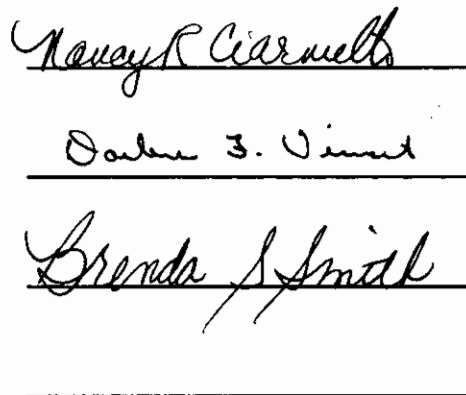 Nancy R Ciarmello
Darlene F. Vincent
Brenda S Smith